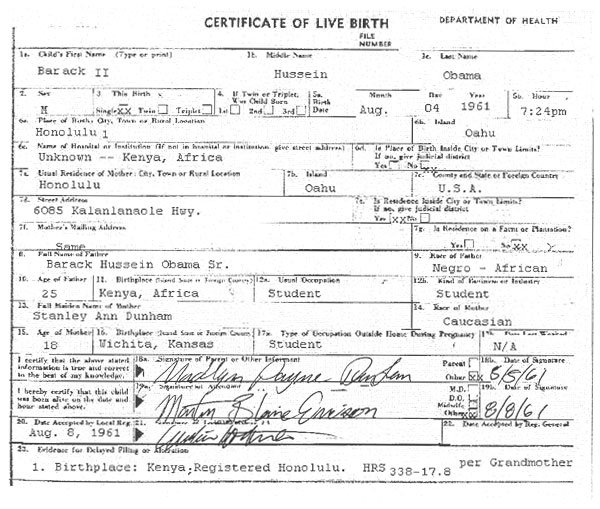 CERTIFICATE OF LIVE BIRTH
DEPARTMENT OF HEALTH
FILE
NUMBER
1a. Child's First Name (Type or print) 1b. Middle Name 1c. Last Name
Barack II Hussein Obama
2. Sex 3. This Birth 4. If Twin or Triplet, Was Child Born 5a. Birth Date Month Day Year 5b. Hour
M Single XX Twin Triplet 1st 2nd 3rd Aug. 04 1961 7:24pm
6a. Place of Birth: City, Town or Rural Location 6b. Island
Honolulu 1 Oahu
6c. Name of Hospital or Institution (If not in hospital or institution, give street address) 6d. Is Place of Birth Inside City or Town Limits? If no, give judicial district
Unknown -- Kenya, Africa Yes No
7a. Usual Residence of Mother: City, Town or Rural Location 7b. Island 7c. County and State or Foreign Country
Honolulu Oahu U.S.A.
7d. Street Address 7e. Is Residence Inside City or Town Limits? If no, give judicial district
6085 Kalanlanaole Hwy. Yes XX No
7f. Mother's Mailing Address 7g. Is Residence on a Farm or Plantation?
Same Yes No XX
8. Full Name of Father 9. Race of Father
Barack Hussein Obama Sr. Negro - African
10. Age of Father 11. Birthplace (Island, State or Foreign Country) 12a. Usual Occupation 12b. Kind of Business or Industry
25 Kenya, Africa Student Student
13. Full Maiden Name of Mother 14. Race of Mother
Stanley Ann Dunham Caucasian
15. Age of Mother 16. Birthplace (Island, State or Foreign Country) 17a. Type of Occupation Outside Home During Pregnancy 17b. Date Last Worked
18 Wichita, Kansas Student N/A
I certify that the above stated information is true and correct to the best of my knowledge. 18a. Signature of Parent or Other Informant Parent Other XX 18b. Date of Signature
Madelyn Payne Dunham 8/8/61
I hereby certify that this child was born alive on the date and hour stated above. 19a. Signature of Attendant M.D. D.O. Midwife Other XX 19b. Date of Signature
8/8/61
20. Date Accepted by Local Reg. 21. 22. Date Accepted by Reg. General
Aug. 8, 1961
23. Evidence for Delayed Filing or Alteration
1. Birthplace: Kenya; Registered Honolulu. HRS 338-17.8 per Grandmother